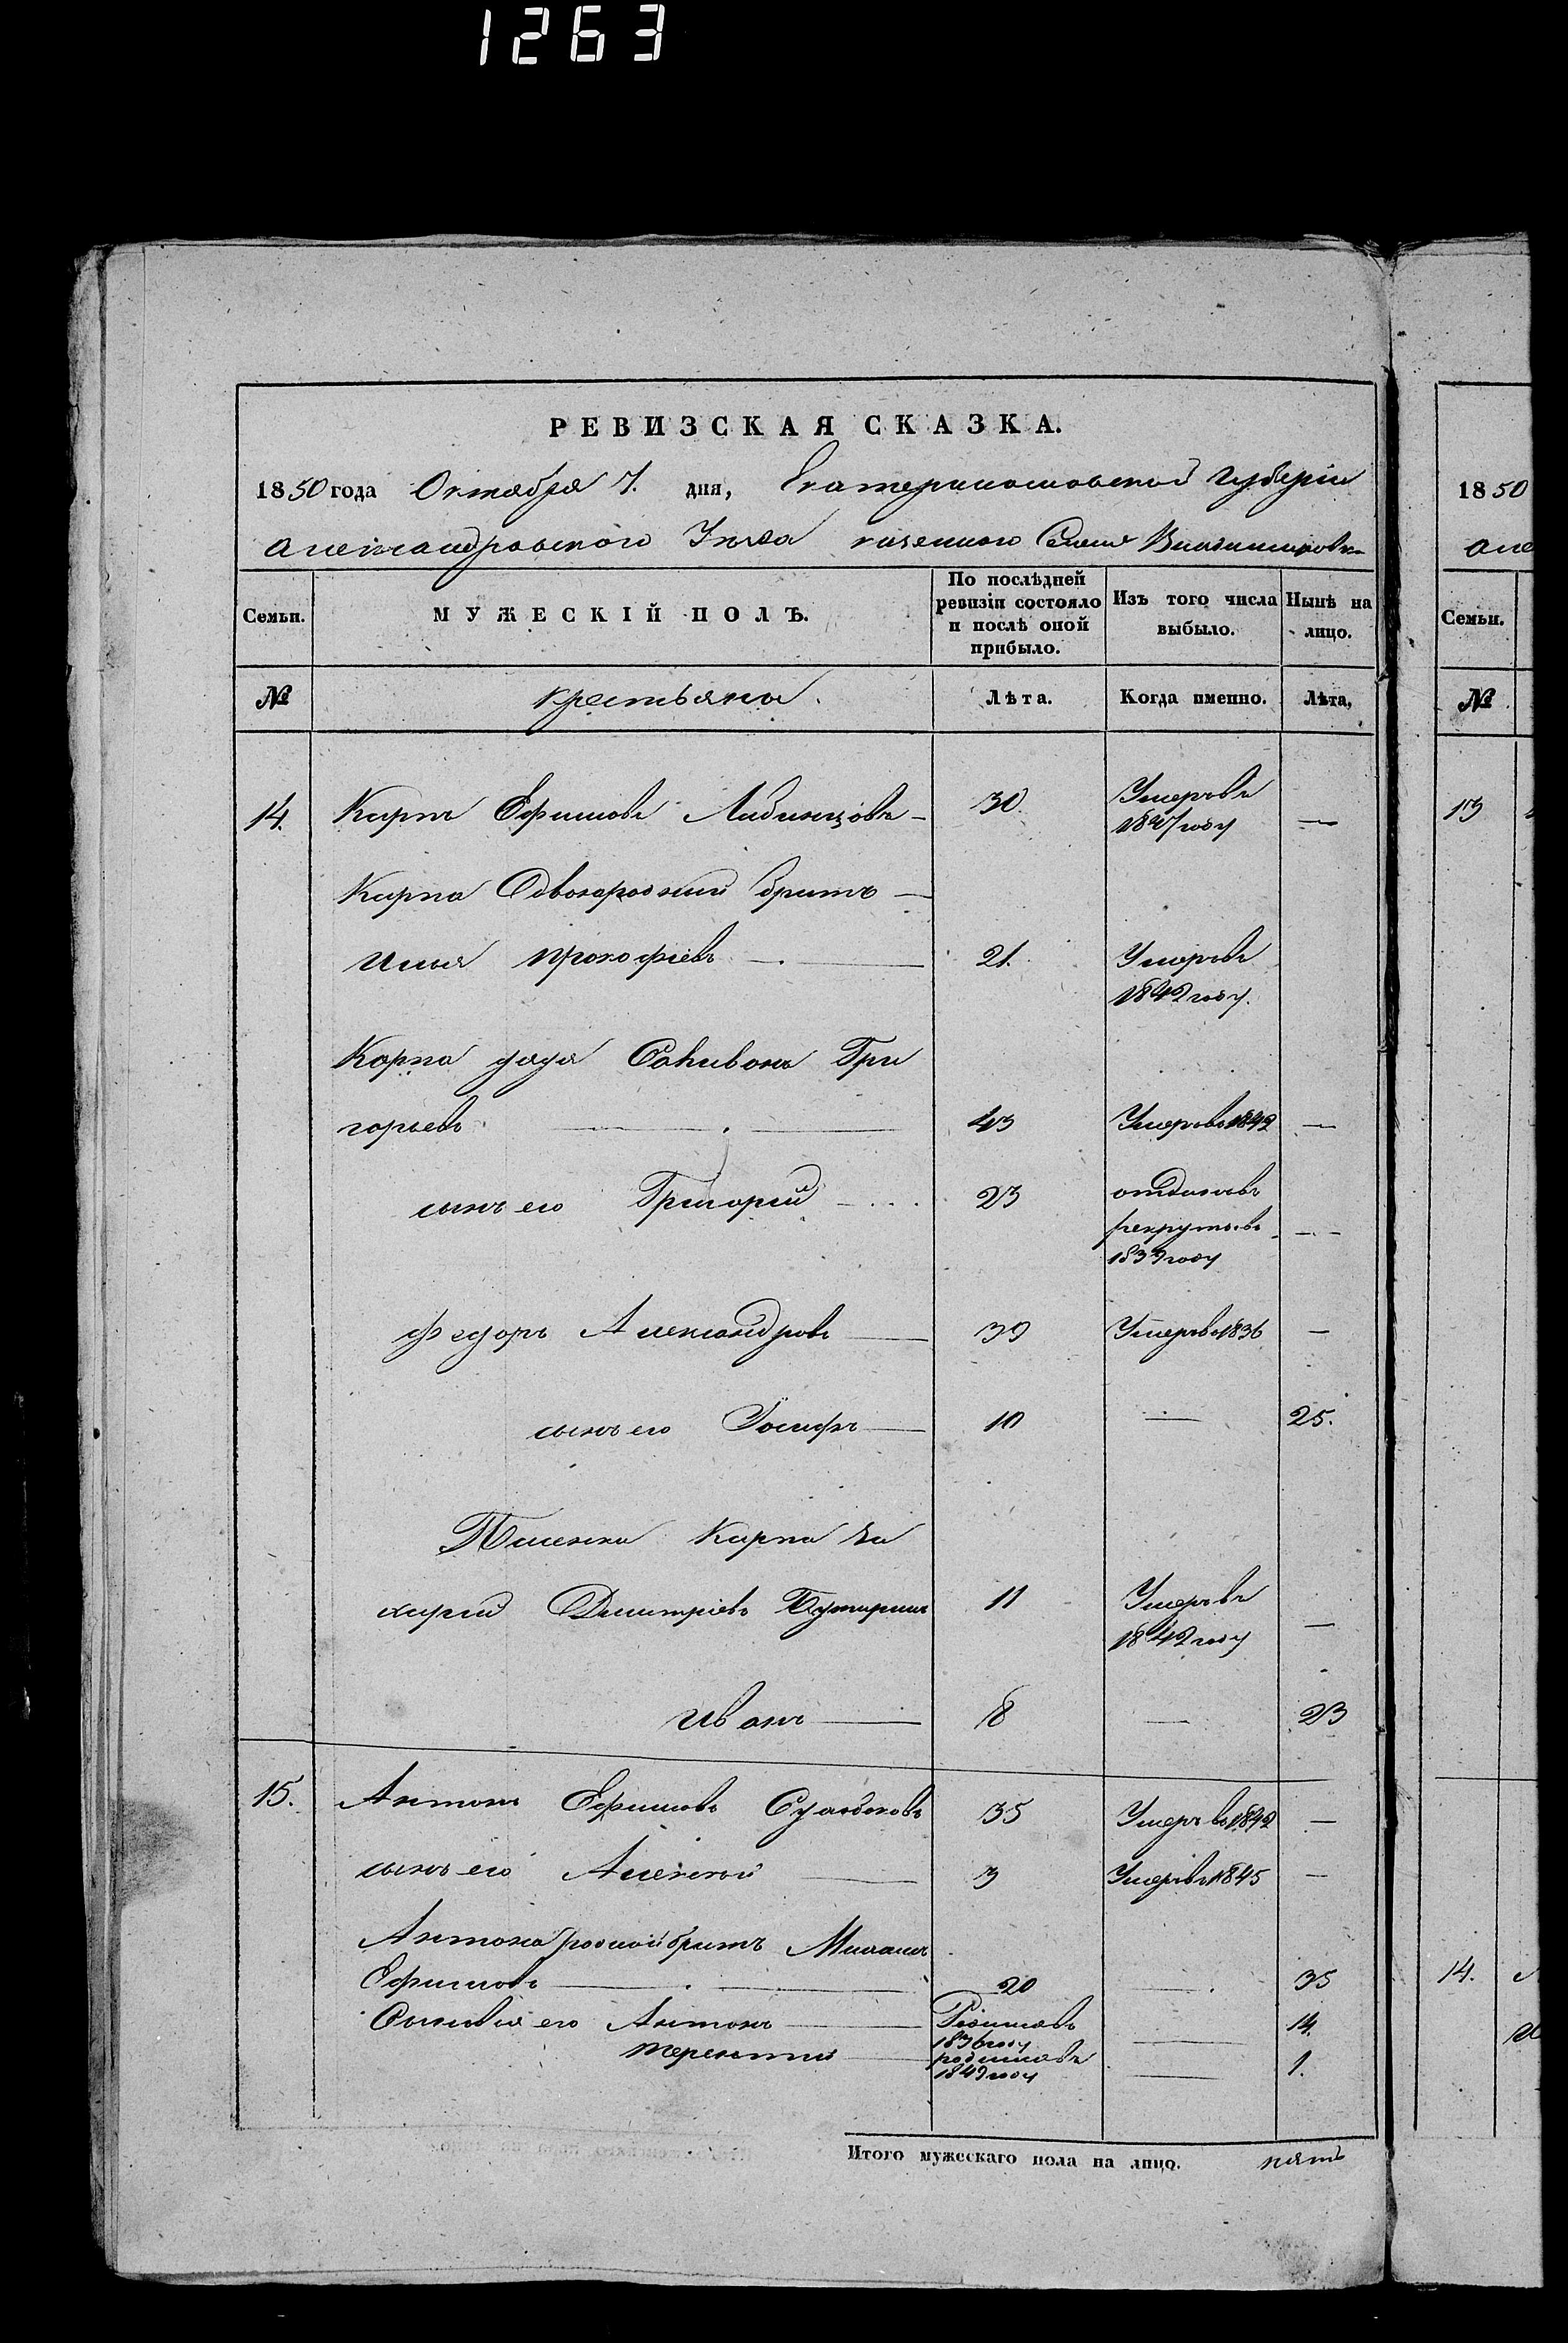 1263
РЕВИЗСКАЯ СКАЗКА.
1850 года Октября 7. дня, Екатеринославской Губерніи
Александровского Уезда казенного Селенія
Семьи. МУЖЕСКІЙ ПОЛЪ. По послѣдней ревизіи состояло и послѣ оной прибыло. Изъ того числа выбыло. Нынѣ на лицо.
№ крестьяна. Лѣта. Когда именно. Лѣта,
14. Карпъ Ефимовъ 30. Умеръ въ 1847 году —
Карпа Двоюродный братъ —
Илья Прокофіевъ 21. Умеръ въ 1842 году.
Карпа дядя Гри
горьевъ 43 Умеръ въ 1842 —
сынъ его Григорій 23 отданъ въ рекруты въ 1839 году —
Федоръ Александровъ 39 Умеръ въ 1836 —
сынъ его Іосифъ 10 — 25.
Карпа За
харій Дмитріевъ 11 Умеръ въ 1842 году —
Иванъ 8 — 23
15. Антонъ Ефимовъ 35 Умеръ въ 1842 —
сынъ его Алексей 3 Умеръ въ 1845 —
Антона родной братъ
Ефимовъ 20 — 35
Сыновья его Антонъ Родился въ 1836 году — 14.
Терентий родился въ 1849 году — 1.
Итого мужескаго пола на лицо. пять
1850
Але
Семьи.
№
13
14.